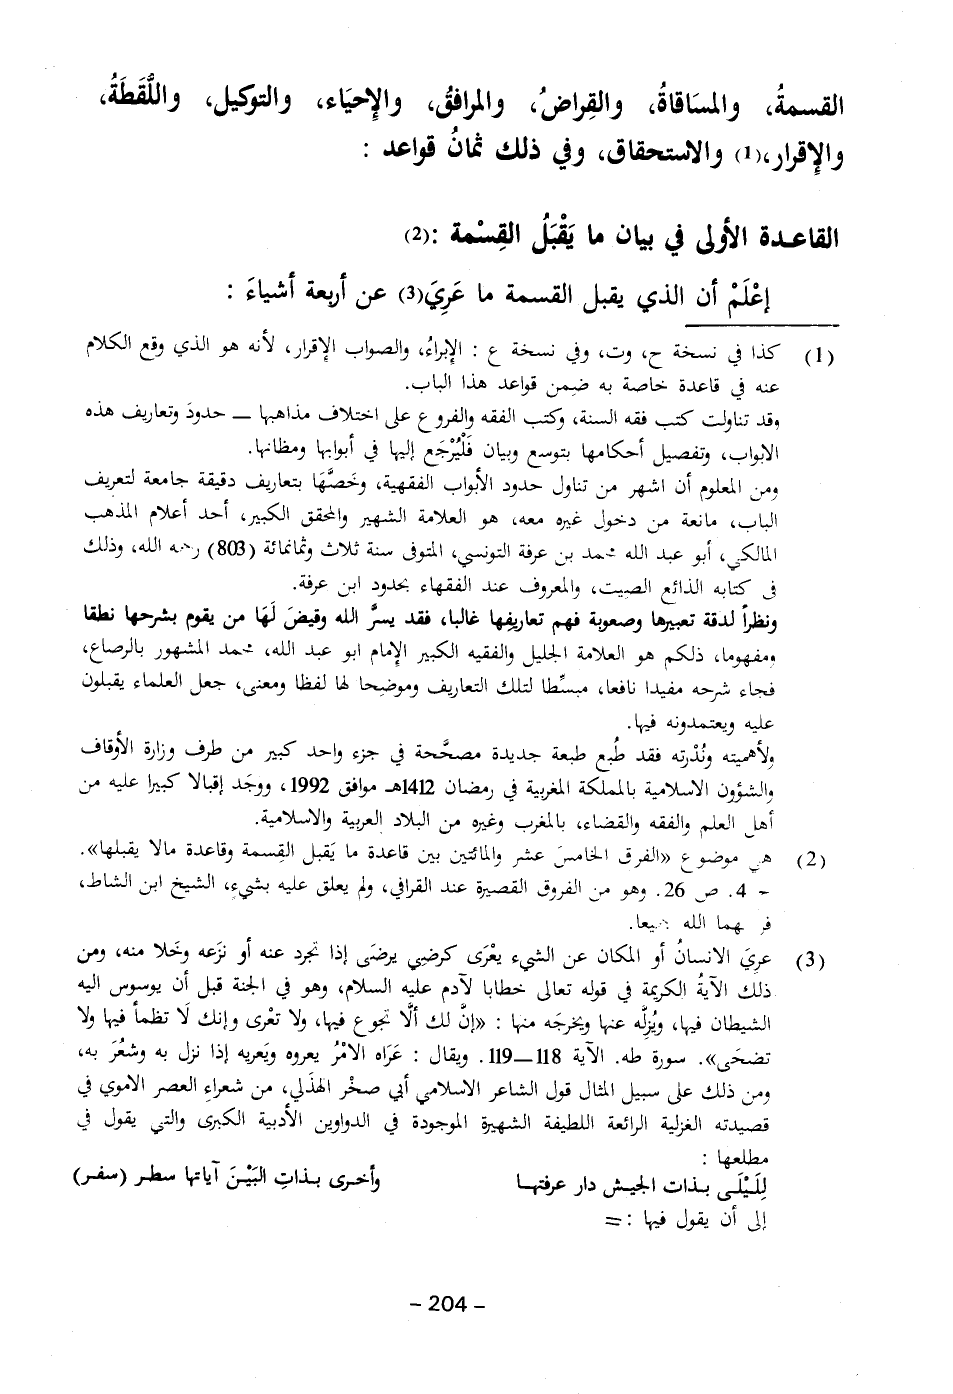 القسمةُ، والمسَاقاةُ، والقِراضُ، والمرافقُ، والإِحيَاء، والتوكيل، واللُّقَطَةُ،
والإِقرار،(1) والاستحقاق، وفي ذلك ثمانُ قواعد :
القاعـدة الأولى في بيان ما يَقْبَلُ القِسْمة :(2)
إعْلَمْ أن الذي يقبل القسمة ما عَرِيَ(3) عن أربعة أشياءَ :
(1) كذا في نسخة ح، وت، وفي نسخة ع : الإبراءُ، والصواب الإقرار، لأنه هو الذي وقع الكلام
عنه في قاعدة خاصة به ضمن قواعد هذا الباب.
وقد تناولت كتب فقه السنة، وكتب الفقه والفروع على اختلاف مذاهبها — حدودَ وتعاريف هذه
الابواب، وتفصيل أحكامها بتوسع وبيان فَلْيُرْجَع إليها في أبوابها ومظانها.
ومن المعلوم أن اشهر من تناول حدود الأبواب الفقهية، وخَصَّهَا بتعاريف دقيقة جامعة لتعريف
الباب، مانعة من دخول غيره معه، هو العلامة الشهير والمحقق الكبير، أحد أعلام المذهب
المالكي، أبو عبد الله محمد بن عرفة التونسي، المتوفى سنة ثلاث وثمانمائة (803) رحمه الله، وذلك
في كتابه الذائع الصيت، والمعروف عند الفقهاء بحدود ابن عرفة.
ونظراً لدقة تعبيرها وصعوبة فهم تعاريفها غالبا، فقد يسرَّ الله وقيضَ لَهَا من يقوم بشرحها نطقا
ومفهوما، ذلكم هو العلامة الجليل والفقيه الكبير الإمام ابو عبد الله، محمد المشهور بالرصاع،
فجاء شرحه مفيدا نافعا، مبسِّطا لتلك التعاريف وموضحا لها لفظا ومعنى، جعل العلماء يقبلون
عليه ويعتمدونه فيها.
ولأهميته ونُدْرته فقد طُبع طبعة جديدة مصحَّحة في جزء واحد كبير من طرف وزارة الأوقاف
والشؤون الاسلامية بالمملكة المغربية في رمضان 1412هـ موافق 1992، ووجَد إقبالا كبيرا عليه من
أهل العلم والفقه والقضاء، بالمغرب وغيره من البلاد العربية والاسلامية.
(2) هي موضوع «الفرق الخامسَ عشر والمائتين بين قاعدة ما يَقبل القِسمة وقاعدة مالا يقبلها».
- 4. ص 26. وهو من الفروق القصيرة عند القرافي، ولم يعلق عليه بشيء، الشيخ ابن الشاط،
فرحمهما الله جميعا.
(3) عرِيَ الانسانُ أو المكان عن الشيء يعْرَى كرضيَ يرضَى إذا تجرد عنه أو نزَعه وخَلا منه، ومن
ذلك الآيةُ الكريمة في قوله تعالى خطابا لآدم عليه السلام، وهو في الجنة قبل أن يوسوس اليه
الشيطان فيها، ويُزِلَّه عنها ويخرجَه منها : «إنَّ لك ألَّا تجوع فيها، ولا تعْرى وإنك لَا تظمأ فيها ولا
تضحَى». سورة طه. الآية 118—119. ويقال : عَرَاه الامْرُ يعروه ويَعريه إذا نزل به وشعُرَ به،
ومن ذلك على سبيل المثال قول الشاعر الاسلامي أبي صخْر الهذَلي، من شعراء العصر الاموي في
قصيدته الغزلية الرائعة اللطيفة الشهيرة الموجودة في الدواوين الأدبية الكبرى والتي يقول في
مطلعها :
لِلَيْلَى بـذات الجيـش دار عرفتهـا وأخـرى بـذاتِ البَيْـنَ آياتها سطـر (سفـر)
إلى أن يقول فيها : =
- 204 -